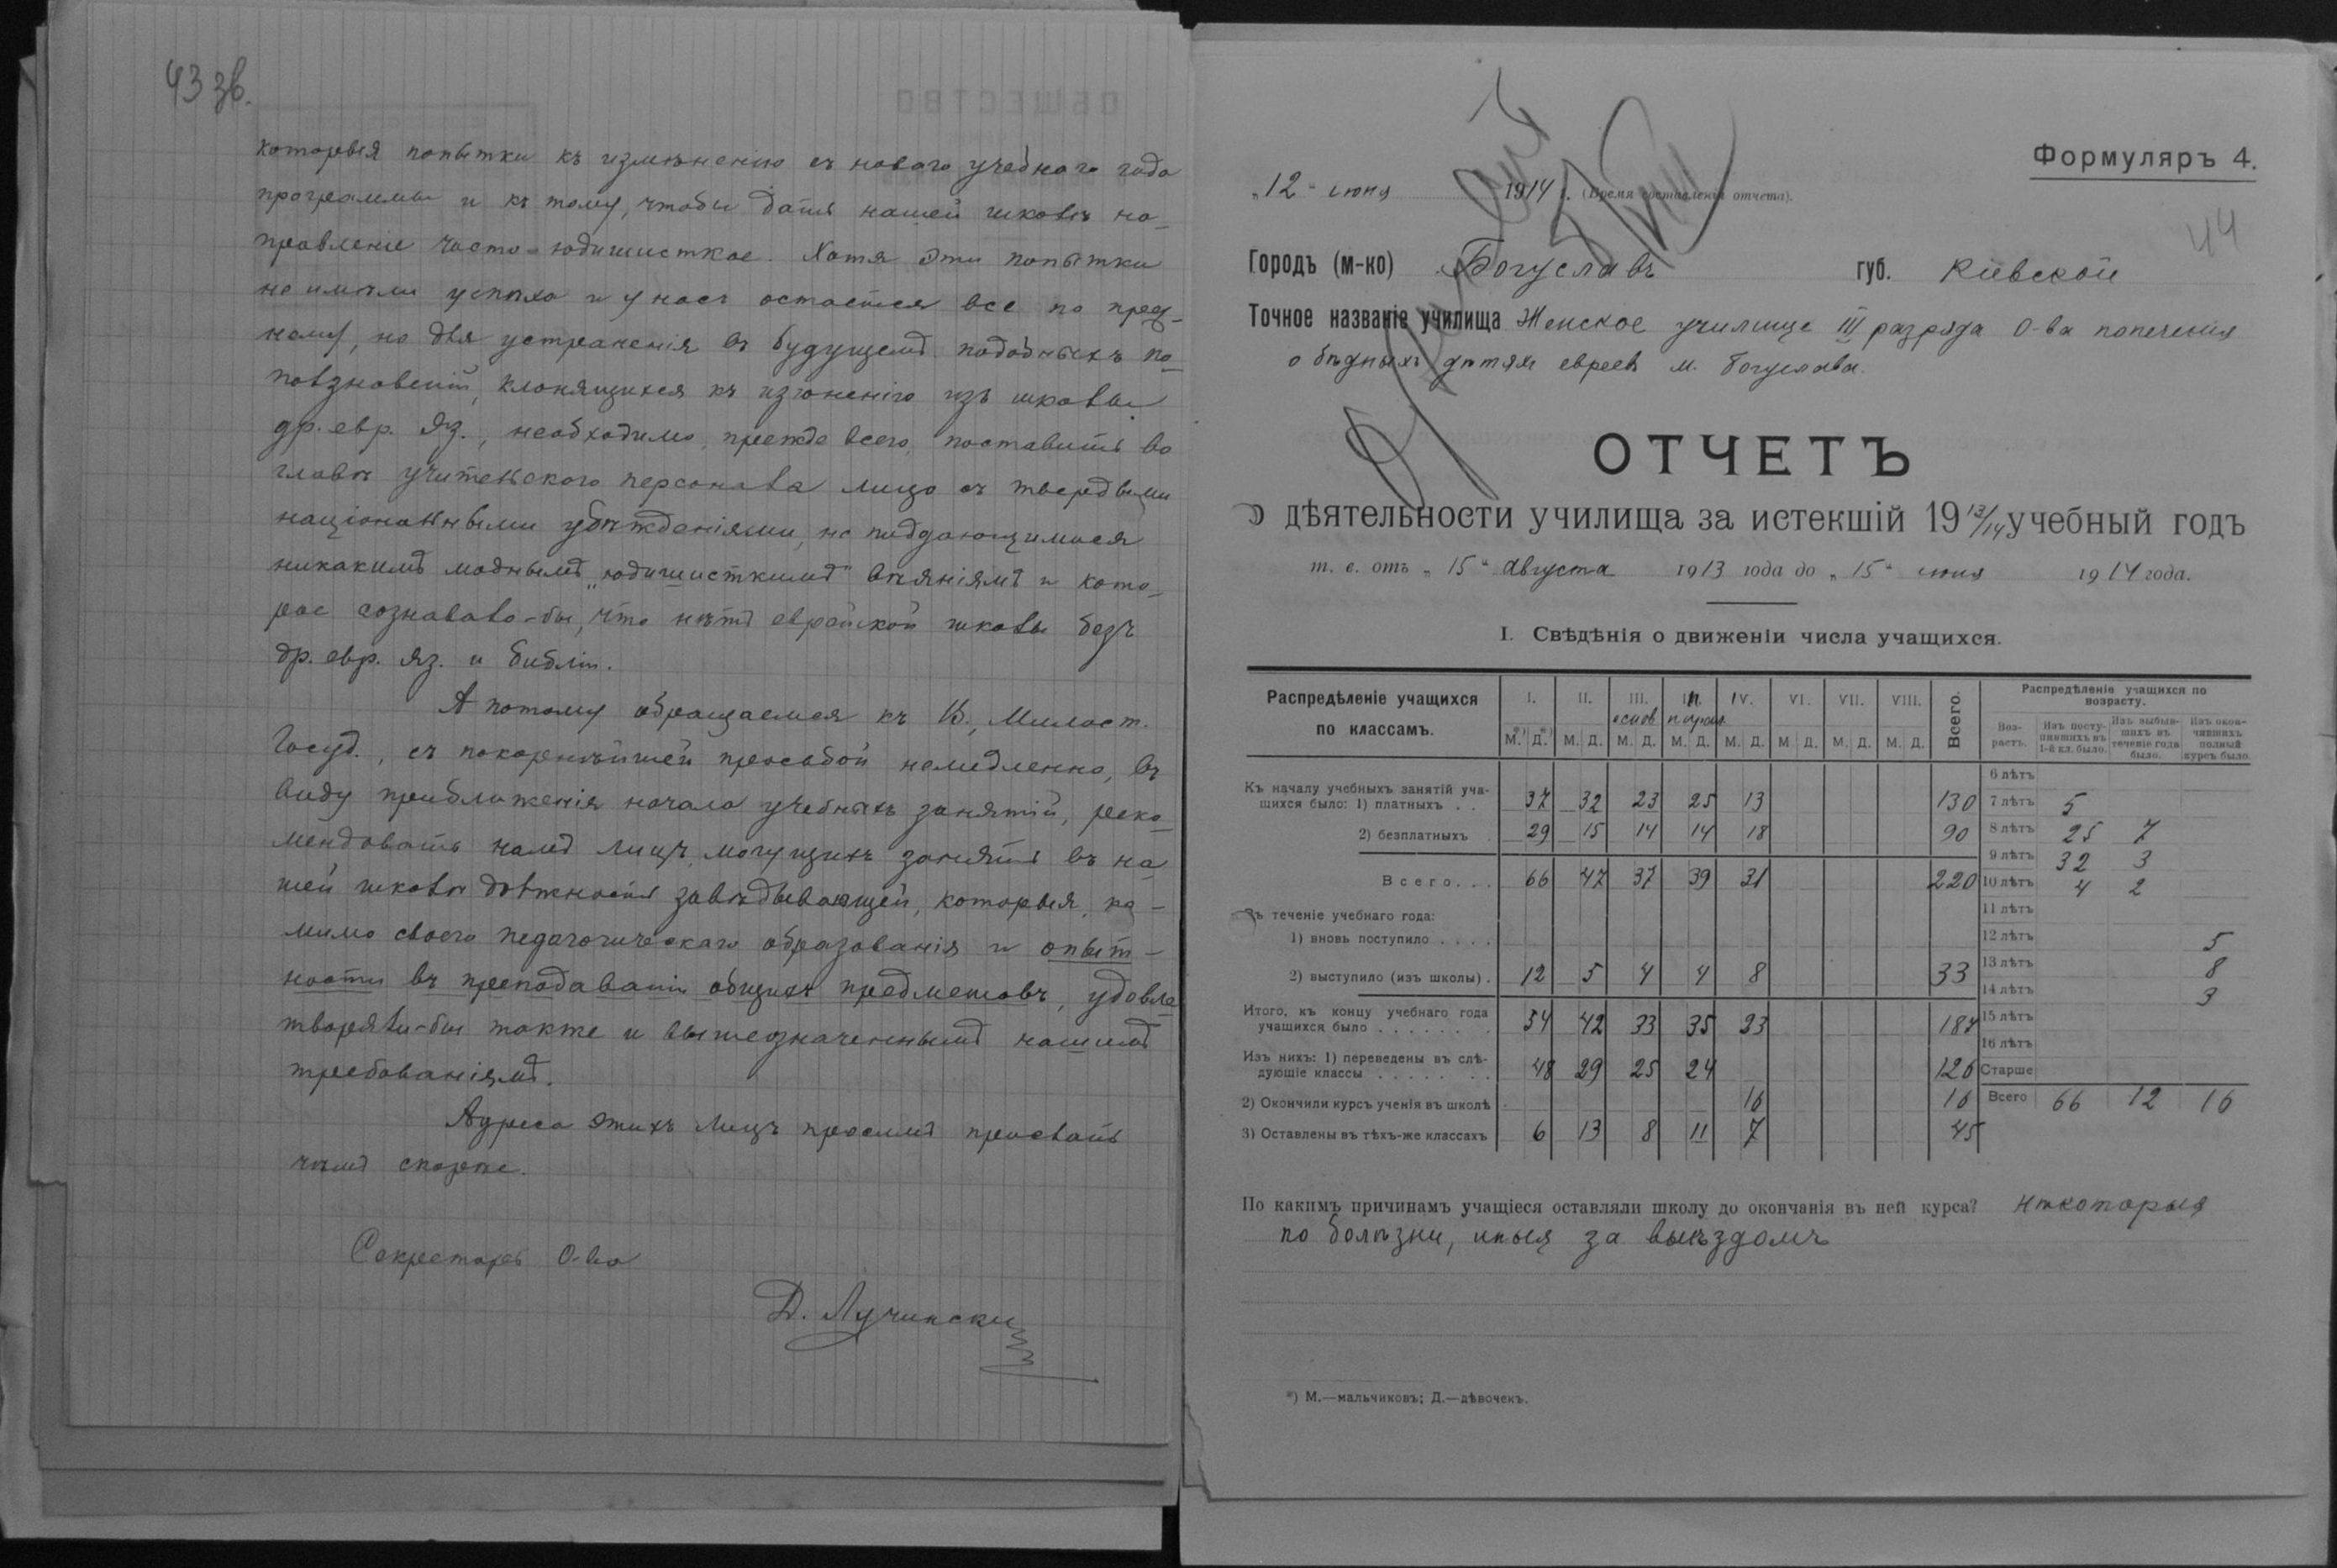 43 зв.
которыя попытки къ измѣненію съ новаго учебнаго года
программы и къ тому, чтобы дать нашей школѣ на-
правленіе чисто-юдишисткое. Хотя эти попытки
не имѣли успѣха и у насъ остается все по преж-
нему, но для устраненія въ будущемъ подобныхъ по-
ползновеній, клонящихся къ изгоненію изъ школы
др. евр. яз., необходимо, прежде всего, поставить во
главѣ учительскаго персонала лицо съ твердыми
національными убѣжденіями, не поддающимися
никакимъ моднымъ „юдишисткимъ" вліяніямъ и кото-
рое сознавало-бы, что нѣтъ еврейской школы безъ
др. евр. яз. и библіи.
А потому обращаемся къ В., Милост.
Госуд., съ покорнѣйшей просьбой немедленно, въ
виду приближенія начала учебныхъ занятій, реко-
мендовать намъ лицъ, могущихъ занять въ на
шей школѣ должность завѣдывающей, которыя, по-
мимо своего педагогическаго образованія и опыт-
ности въ преподаваніи общихъ предметовъ, удовле
творяли-бы также и вышеозначеннымъ нашимъ
требованіямъ.
Адреса этихъ лицъ просимъ прислать
чѣмъ скорѣе.
Секретарь О-ва
Д. Лучински
Формуляръ 4.
„12" іюня 1914 г. (Время составленія отчета).
44
Городъ (м-ко) Богуславъ губ. Кіевской
Точное названіе училища Женское училище III разряда О-ва попеченія
о бѣдныхъ дѣтяхъ евреевъ м. Богуслава.
ОТЧЕТЪ
о дѣятельности училища за истекшій 1913/14 учебный годъ
т. е. отъ „15" августа 1913 года до „15" іюня 1914 года.
I. Свѣдѣнія о движеніи числа учащихся.
Распредѣленіе учащихся по классамъ. I. II. III. основ III. парал. IV. VI. VII. VIII. Всего.
М.*) Д.*) М. Д. М. Д. М. Д. М. Д. М. Д. М. Д. М. Д.
Къ началу учебныхъ занятій уча-
щихся было: 1) платныхъ . . 37 32 23 25 13 130
2) безплатныхъ . 29 15 14 14 18 90
Всего. . . 66 47 37 39 31 220
Въ теченіе учебнаго года:
1) вновь поступило . . . .
2) выступило (изъ школы) . 12 5 4 4 8 33
Итого, къ концу учебнаго года
учащихся было . . . . . . . 54 42 33 35 23 187
Изъ нихъ: 1) переведены въ слѣ-
дующіе классы . . . . . . . 48 29 25 24 126
2) Окончили курсъ ученія въ школѣ 16 16
3) Оставлены въ тѣхъ-же классахъ 6 13 8 11 7 45
Распредѣленіе учащихся по возрасту.
Воз-растъ. Изъ посту-пившихъ въ 1-й кл. было. Изъ выбыв-шихъ въ теченіе года было. Изъ окон-чившихъ полный курсъ было.
6 лѣтъ
7 лѣтъ 5
8 лѣтъ 25 7
9 лѣтъ 32 3
10 лѣтъ 4 2
11 лѣтъ
12 лѣтъ 5
13 лѣтъ 8
14 лѣтъ 3
15 лѣтъ
16 лѣтъ
Старше
Всего 66 12 16
По какимъ причинамъ учащіеся оставляли школу до окончанія въ ней курса? Нѣкоторыя
по болѣзни, иныя за выѣздомъ
*) М.—мальчиковъ; Д.—дѣвочекъ.